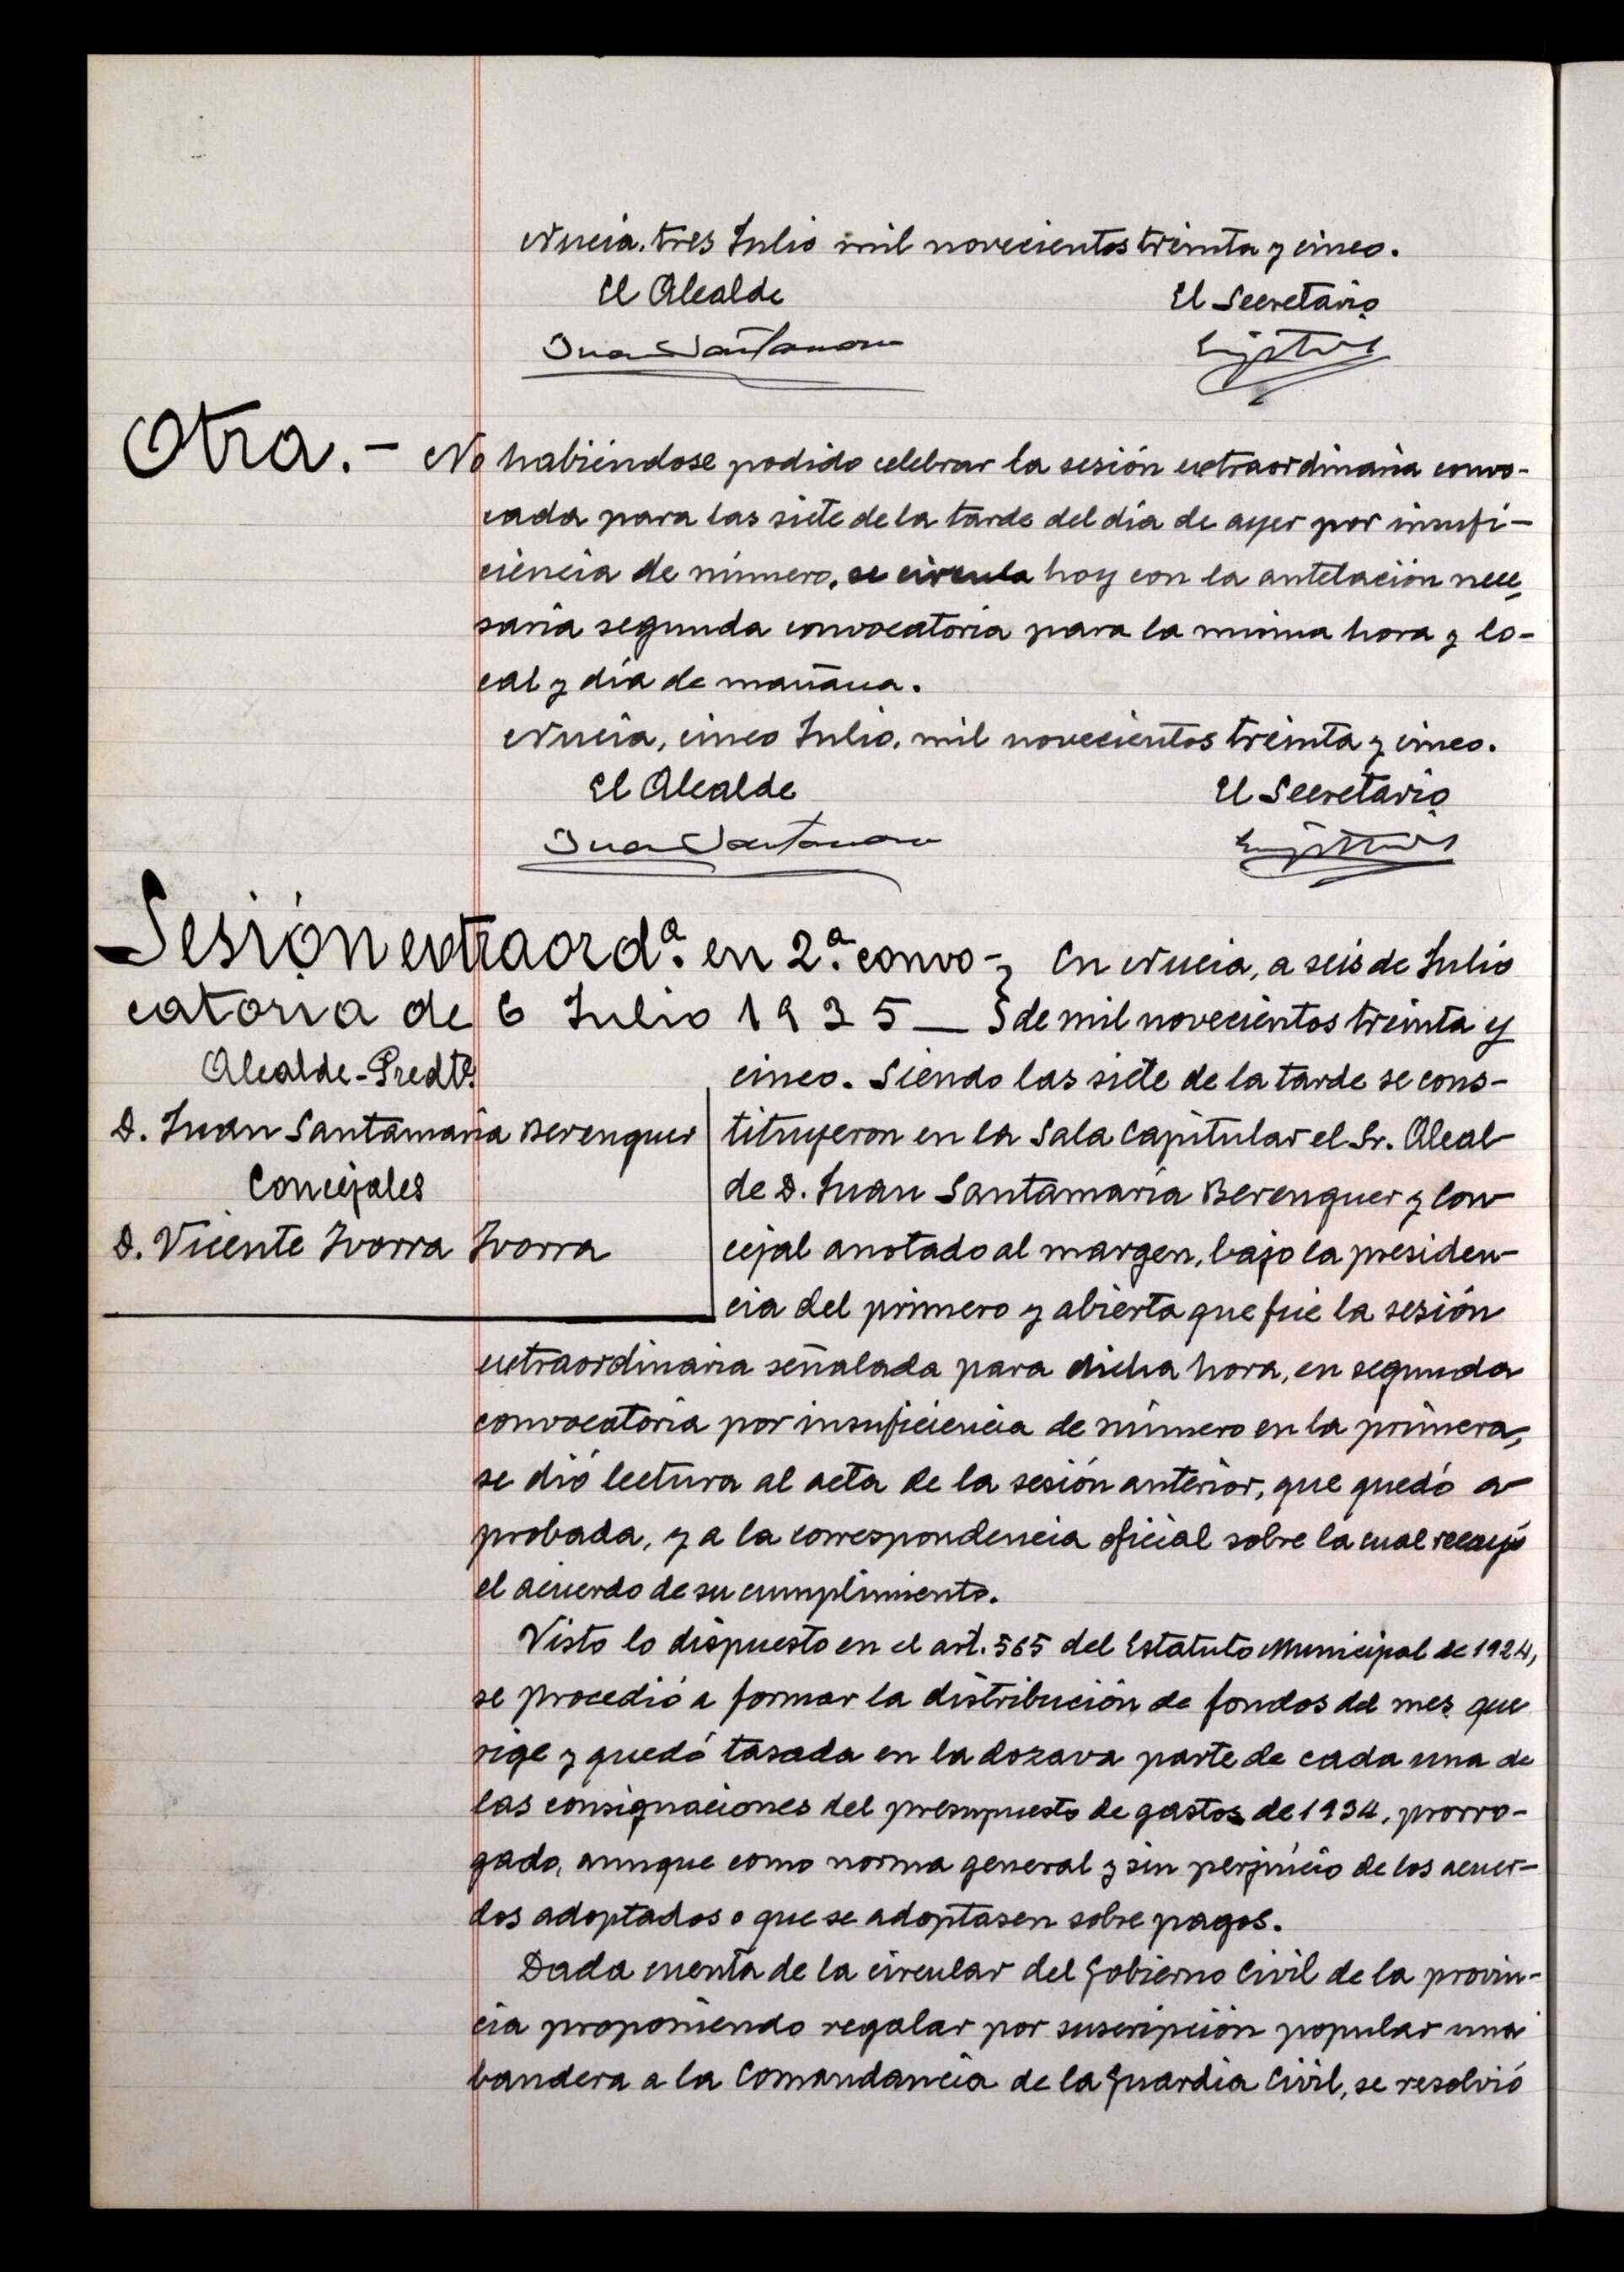 Nucia, tres Julio mil novecientos treinta y cinco.
El Alcalde
El Secretario
Juan Santamaria
Otra.- No habiéndose podido celebrar la sesión extraordinaria convo-
cada para las siete de la tarde del día de ayer por insufi-
ciencia de número, se circula hoy con la antelación nece
saria segunda convocatoria para la misma hora y lo-
cal y día de mañana.
Nucia, cinco Julio, mil novecientos treinta y cinco.
El Alcalde
El Secretario
Juan Santamaria
Sesión extraord.ª en 2.ª convo-
catoria de 6 Julio 1935
Alcalde-Predte.
D. Juan Santamaría Berenguer
Concejales
D. Vicente Ivorra Ivorra
En Nucia, a seis de Julio
de mil novecientos treinta y
cinco. Siendo las siete de la tarde se cons-
tituyeron en la Sala Capitular el Sr. Alcal-
de D. Juan Santamaría Berenguer y con-
cejal anotado al margen, bajo la presiden-
cia del primero y abierta que fué la sesión
extraordinaria señalada para dicha hora, en segunda
convocatoria por insuficiencia de número en la primera,
se dió lectura al acta de la sesión anterior, que quedó a-
probada, y a la correspondencia oficial sobre la cual recayó
el acuerdo de su cumplimiento.
Visto lo dispuesto en el art. 565 del Estatuto Municipal de 1924,
se procedió a formar la distribución de fondos del mes que
rige y quedó tasada en la dozava parte de cada una de
las consignaciones del presupuesto de gastos de 1934, prorro-
gado, aunque como norma general y sin perjuicio de los acuer-
dos adoptados o que se adoptasen sobre pagos.
Dada cuenta de la circular del Gobierno Civil de la provin-
cia proponiendo regalar por suscripción popular una
bandera a la Comandancia de la Guardia Civil, se resolvió